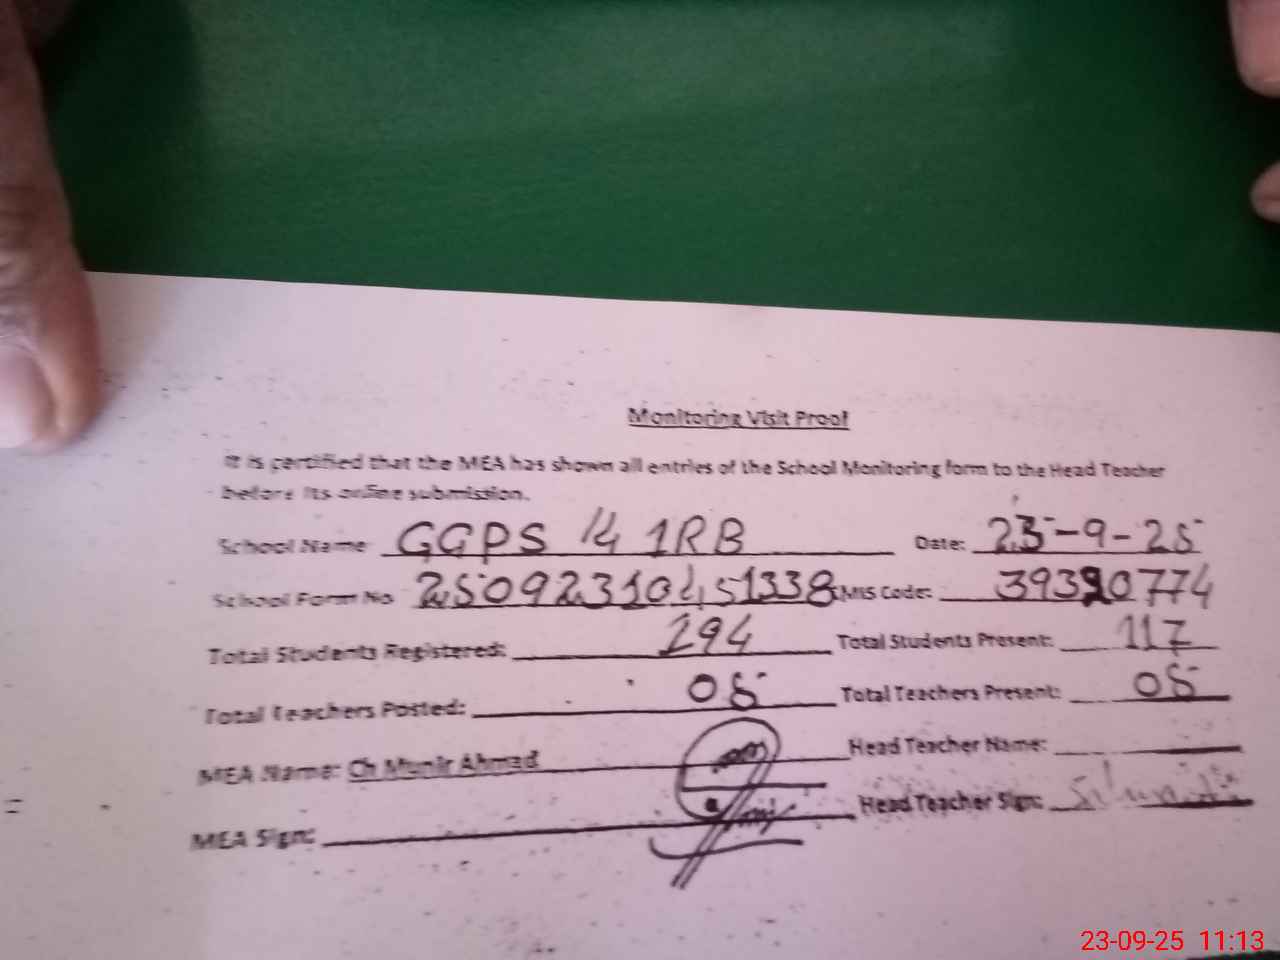 Monitoring Visit Proof
It is certified that the MEA has shown all entries of the School Monitoring form to the Head Teacher
before its online submission.
School Name GGPS 14 1RB Date: 23-9-25
School Form No 25092310451338 EMIS Code: 39320774
Total Students Registered: 194 Total Students Present: 117
Total Teachers Posted: 05 Total Teachers Present: 05
MEA Name: Ch Munir Ahmad Head Teacher Name:
MEA Sign: Head Teacher Sign:
23-09-25 11:13